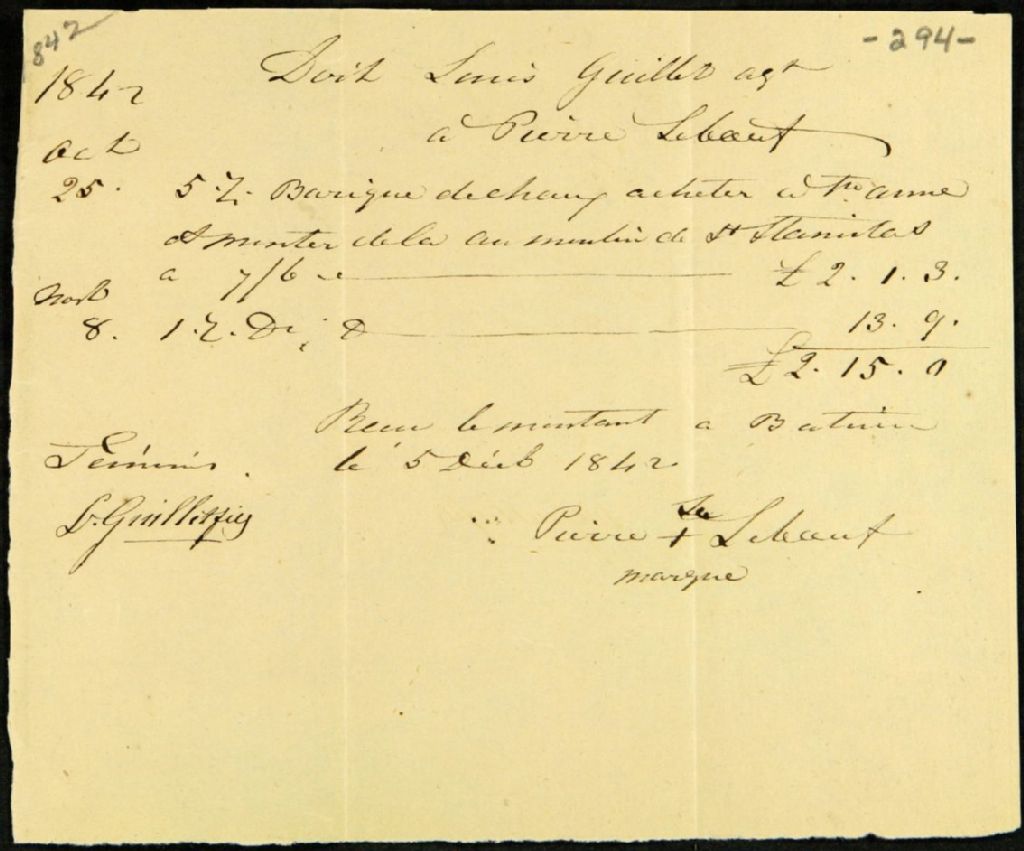 842
- 294 -
1842 Doit Louis Guillet agt
Oct à Pierre Lebœuf
25. 5.½. Barique de chaux acheter à Ste anne
& monter de la au moulin de St Stanislas
a 7/6 £ 2. 1. 3.
Novb
8. 1.½. Do, Do 13. 9.
£ 2. 15. 0
Recu le montant a Batiscan
Témoins. le 5 Décb 1842
L. Guillet fils
Pierre + Lebœuf
sa
marque